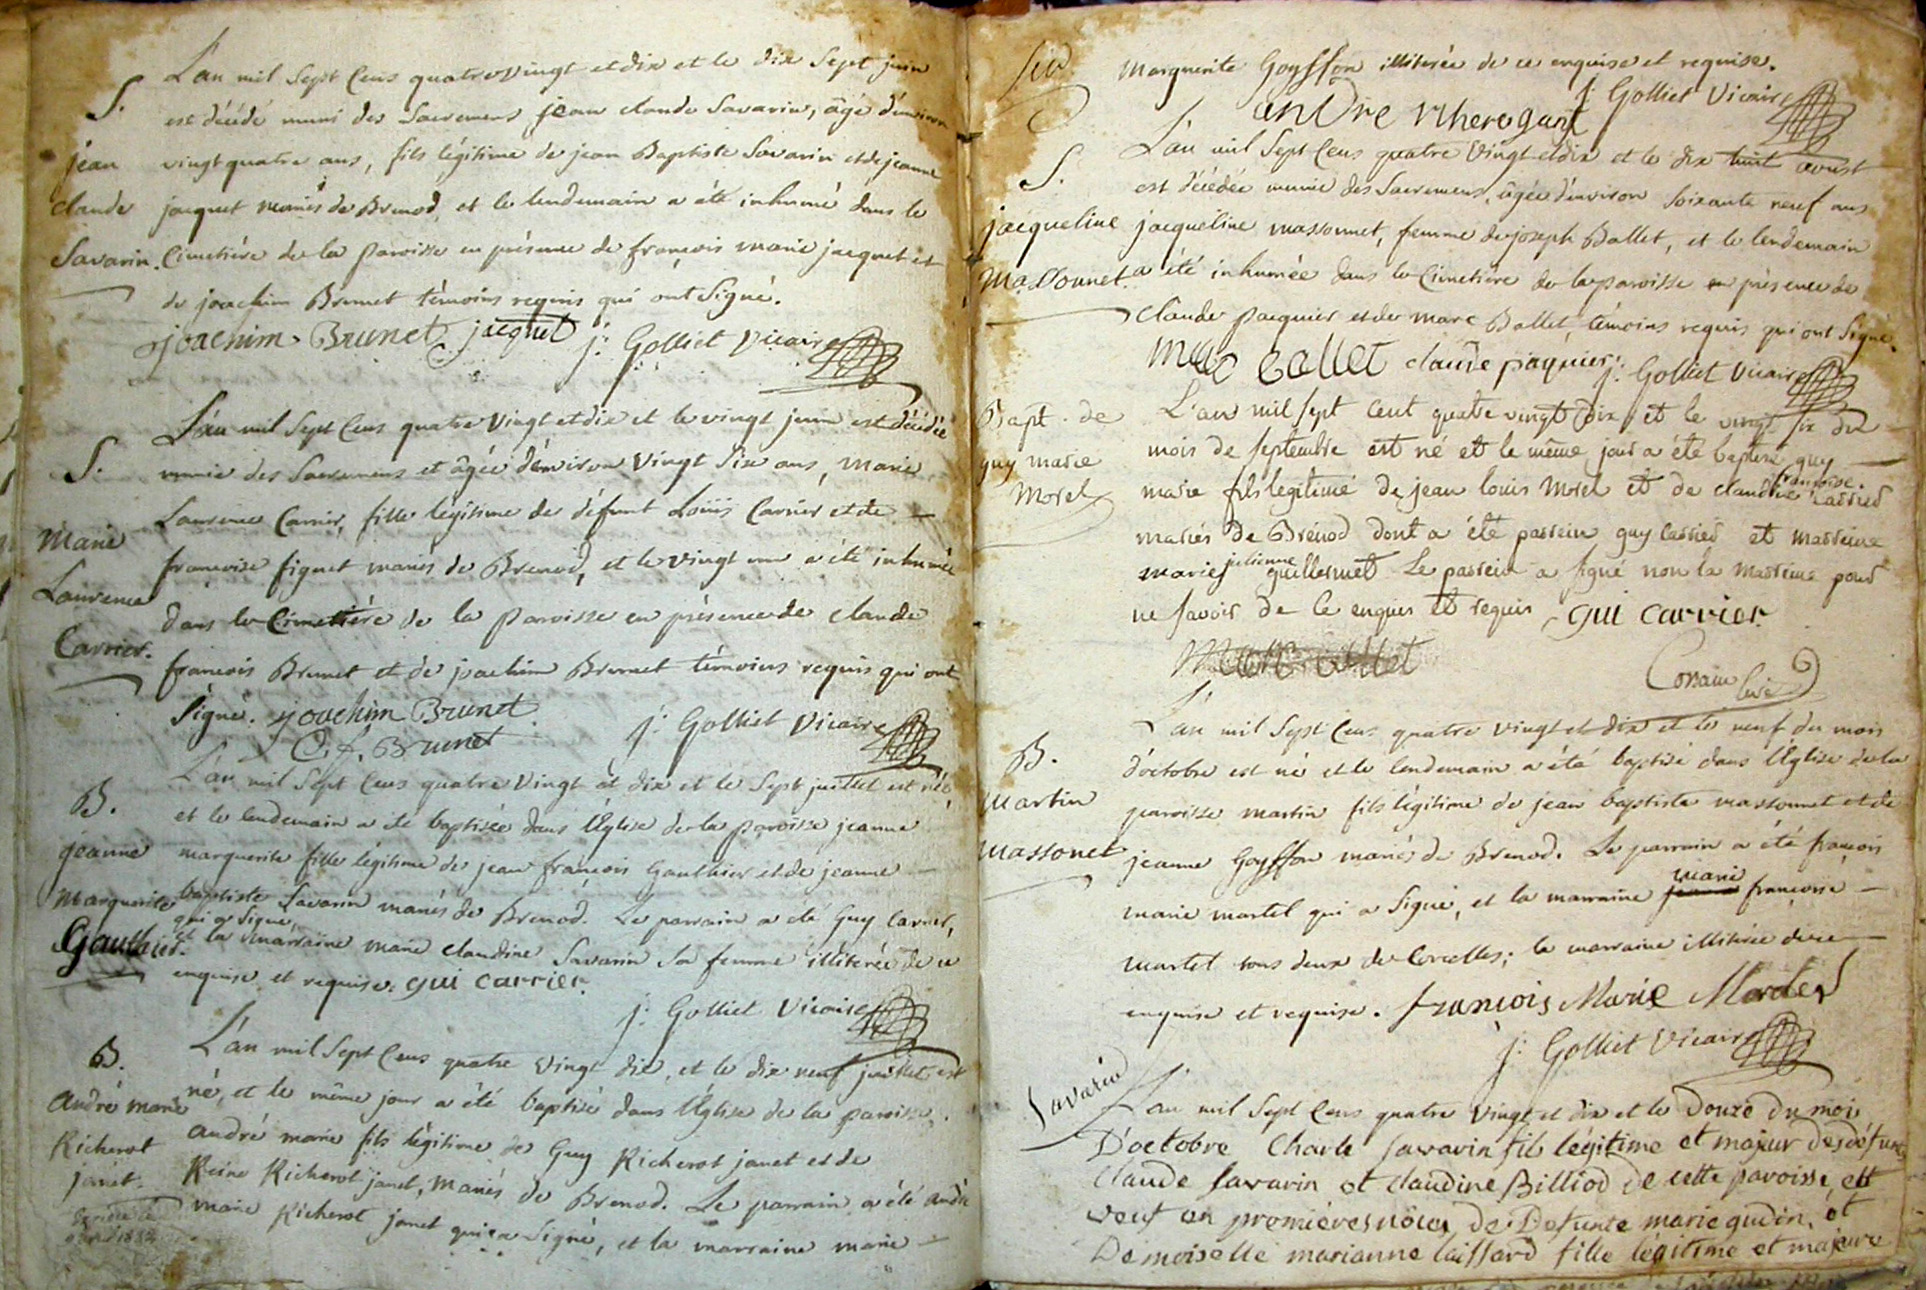 L'an mil Sept Cens quatre vingt et dix et le dix Sept juin
S.
est décédé muni des Sacremens jean claude Savarin, âgé d'environ
jean
vingt quatre ans, fils légitime de jean Baptiste Savarin et de jeanne
claude
jacquet mariés de Brenod, et le lendemain a été inhumé dans le
Savarin.
Cimetière de la Paroisse en présence de françois marie jacquet et
de joachim Brunet témoins requis qui ont Signé.
joachim Brunet jacquet j: Golliet Vicaire
L'an mil Sept Cens quatre Vingt et dix et le vingt juin est décédée
S.
munie des Sacremens et âgée d'environ Vingt Six ans, Marie
Marie
Laurence Carrier, fille légitime de défunt Loüis Carrier et de
françoise figuet mariés de Brenod, et le vingt un a été inhumée
Laurence
dans le Cimetière de la Paroisse en présence de claude
Carrier.
françois Brunet et de joachim Brunet témoins requis qui ont
Signé. joachim Brunet
C. f. Brunet j: Golliet Vicaire
L'an mil Sept Cens quatre Vingt et dix et le Sept juillet est née
B.
et le lendemain a été baptisée dans l'Église de la paroisse jeanne
jeanne
marguerite fille légitime de jean françois Gauthier et de jeanne
Marguerite
baptiste Savarin mariés de Brenod. Le parrain a été Guy Carrier,
qui a Signé,
Gauthier.
et la marraine marie claudine Savarin Sa femme illitérée de ce
enquise et requise. gui carrier.
j: Golliet Vicaire
L'an mil Sept Cens quatre Vingt dix, et le dix neuf juillet est
B.
né, et le même jour a été baptisé dans l'Église de la paroisse
André marie
andré marie fils légitime de Guy Richerot janet et de
Richerot
janet.
Reine Richerot janet, mariés de Brenod. Le parrain a été André
marie Richerot janet qui a Signé, et la marraine marie
Marguerite Goyffon illitérée de ce enquise et requise.
j: Golliet Vicaire
andre
L'an mil Sept Cens quatre Vingt et dix et le dix huit aoust
S.
est décédée munie des Sacremens, âgée d'environ Soixante neuf ans
jacqueline
jacqueline massonnet, femme de joseph Ballet, et le lendemain
Massonnet.
a été inhumée dans le Cimetière de la paroisse en présence de
claude paquier et de marc Ballet témoins requis qui ont Signé.
marc ballet claude paquier j: Golliet Vicaire
Bapt. de
L'an mil sept cent quatre vingt dix et le vingt six du
guy marie
mois de septembre est né et le même jour a été baptisé guy
Morel
françoise
marie fils legitime de jean louis Morel et de claudine carrier
mariés de Brénod dont a été parrein guy carrier et marreine
julienne
marie guillermet Le parrein a signé non la marreine pour
ne savoir de ce enquis et requis gui carrier.
marc ballet
curé
L'an mil Sept Cens quatre vingt et dix et le neuf du mois
B.
d'octobre est né et le lendemain a été baptisé dans l'Eglise de la
Martin
paroisse martin fils légitime de jean baptiste massonnet et de
Massonet
jeanne Goyffon mariés de Brenod. Le parrain a été françois
marie
marie martel qui a Signé, et la marraine jeanne françoise
martel tous deux de Corcelles; la marraine illitérée de ce
enquise et requise. françois Marie Martel
j: Golliet Vicaire
Savarin
L'an mil Sept Cens quatre Vingt et dix et le Douze du moi
D'octobre Charle Savarin fil légitime et majeur des défunt
Claude Savarin et claudine Billiod de cette paroisse, et
veuf en premières nôces de Defunte marie gudin, et
Demoiselle marianne laissard fille légitime et majeure